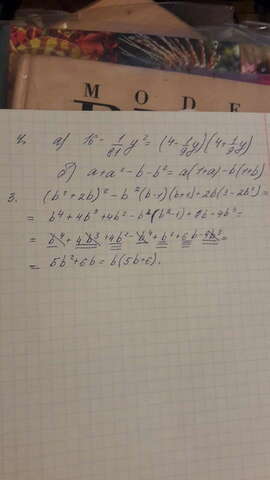 MODE
4. а) 16 - 1/81 y² = (4 - 1/9 y)(4 + 1/9 y)
б) a + a² - b - b² = a(1+a) - b(1+b)
3. (b² + 2b)² - b²(b-1)(b+1) + 2b(3 - 2b²) =
= b⁴ + 4b³ + 4b² - b²(b²-1) + 6b - 4b³ =
= b⁴ + 4b³ + 4b² - b⁴ + b² + 6b - 4b³ =
= 5b² + 6b = b(5b+6).